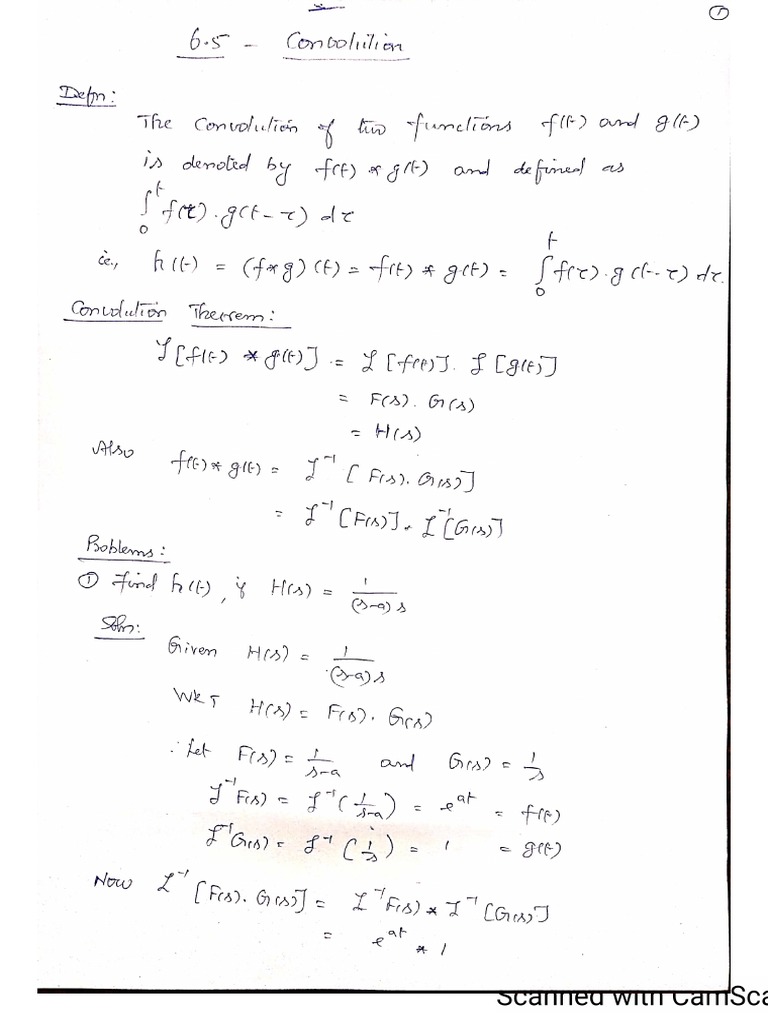 ①
6.5 - Convolution
Defn:
The Convolution of two functions f(t) and g(t)
is denoted by f(t) * g(t) and defined as
∫₀ᵗ f(τ).g(t-τ) dτ
ie., h(t) = (f*g)(t) = f(t) * g(t) = ∫₀ᵗ f(τ).g(t-τ) dτ.
Convolution Theorem:
ℒ[f(t) * g(t)] = ℒ[f(t)]. ℒ[g(t)]
= F(s). G(s)
= H(s)
Also f(t)* g(t) = ℒ⁻¹[F(s). G(s)]
= ℒ⁻¹[F(s)] * ℒ⁻¹[G(s)]
Problems:
① Find h(t), if H(s) = 1/(s-a)s
Soln:
Given H(s) = 1/(s-a)s
WKT H(s) = F(s). G(s)
∴ Let F(s) = 1/s-a and G(s) = 1/s
ℒ⁻¹F(s) = ℒ⁻¹(1/s-a) = eᵃᵗ = f(t)
ℒ⁻¹G(s) = ℒ⁻¹(1/s) = 1 = g(t)
Now ℒ⁻¹[F(s). G(s)] = ℒ⁻¹F(s) * ℒ⁻¹[G(s)]
= eᵃᵗ * 1
Scanned with CamSca